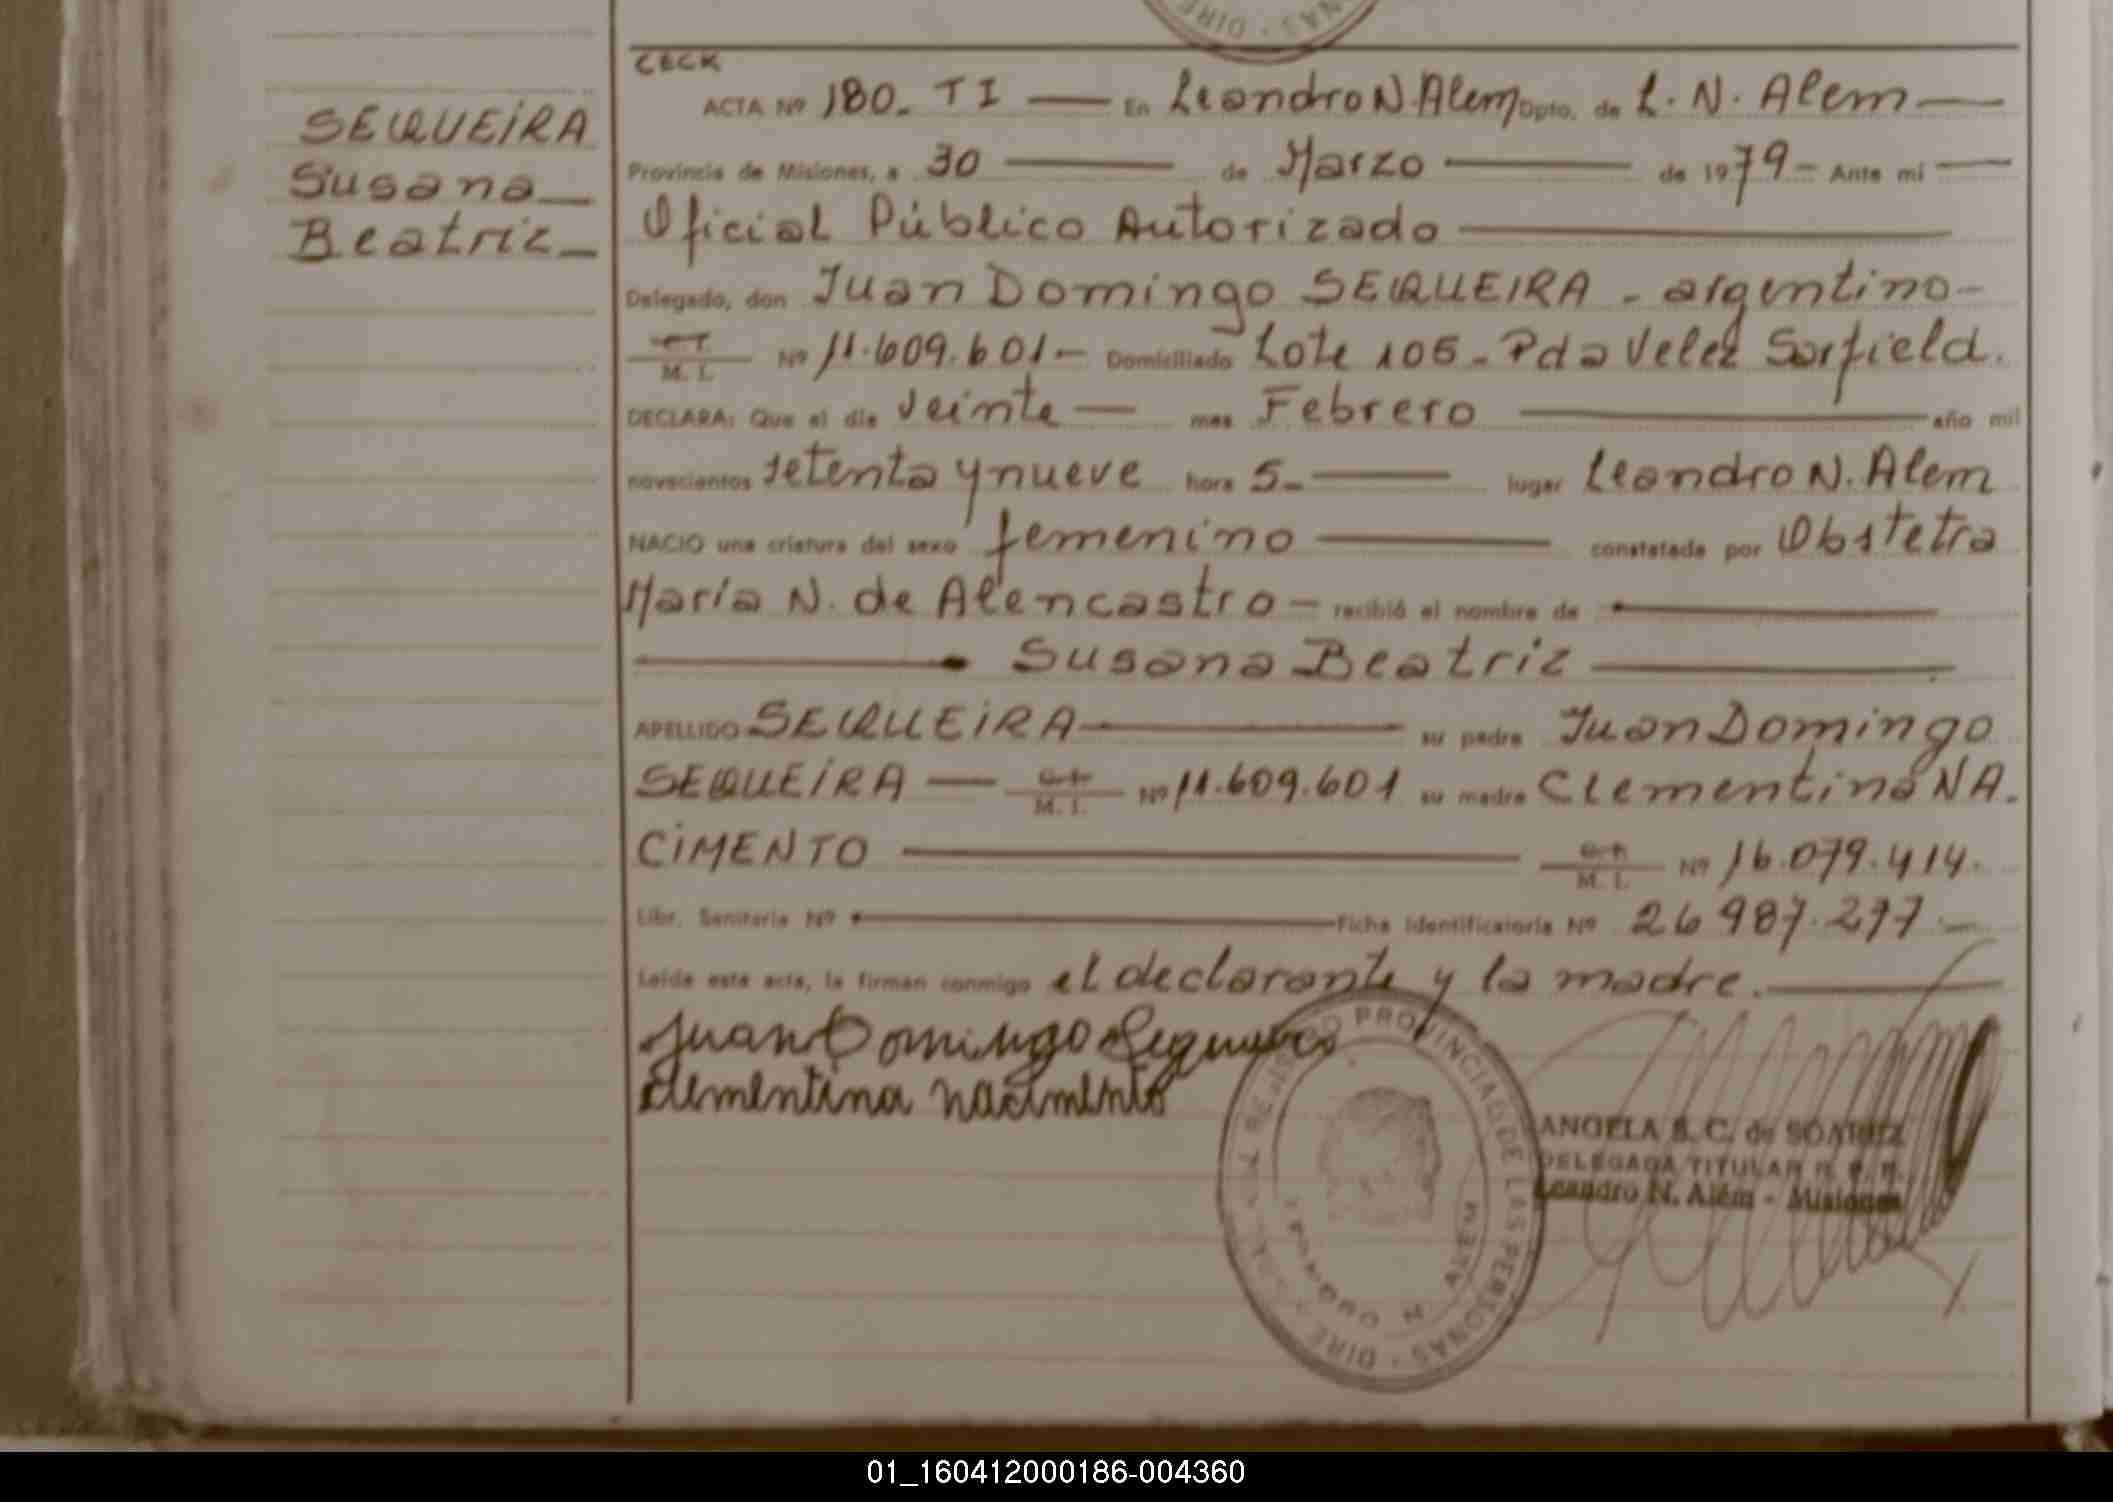 DIRE · SONAS
SEQUEIRA
Susana
Beatriz
CECK
ACTA Nº 180. TI En Leandro N. Alem Dpto. de L. N. Alem
Provincia de Misiones, a 30 de Marzo de 1979 - Ante mi
Oficial Público Autorizado
Delegado, don Juan Domingo SEQUEIRA - argentino -
M. I. Nº 11.609.601 - Domiciliado Lote 105 - Pda Velez Sarfield.
DECLARA: Que el día veinte mes Febrero año mil
novecientos setenta y nueve hora 5 - lugar Leandro N. Alem
NACIO una criatura del sexo femenino constatada por Obstetra
María N. de Alencastro - recibió el nombre de
Susana Beatriz
APELLIDO SEQUEIRA su padre Juan Domingo
SEQUEIRA M. I. Nº 11.609.601 su madre Clementina NA-
CIMENTO M. I. Nº 16.079.414.
Libr. Sanitaria Nº Ficha Identificatoria Nº 26 987.277 -
Leída esta acta, la firman conmigo el declarante y la madre.
Juan Domingo Sequeira
Clementina nacimento
PROVINCIAL DE LAS PERSONAS · DIRE
LEANDRO N. ALEM
ANGELA S. C. de
DELEGADA TITULAR R. P. P.
Leandro N. Além - Misiones
01_160412000186-004360